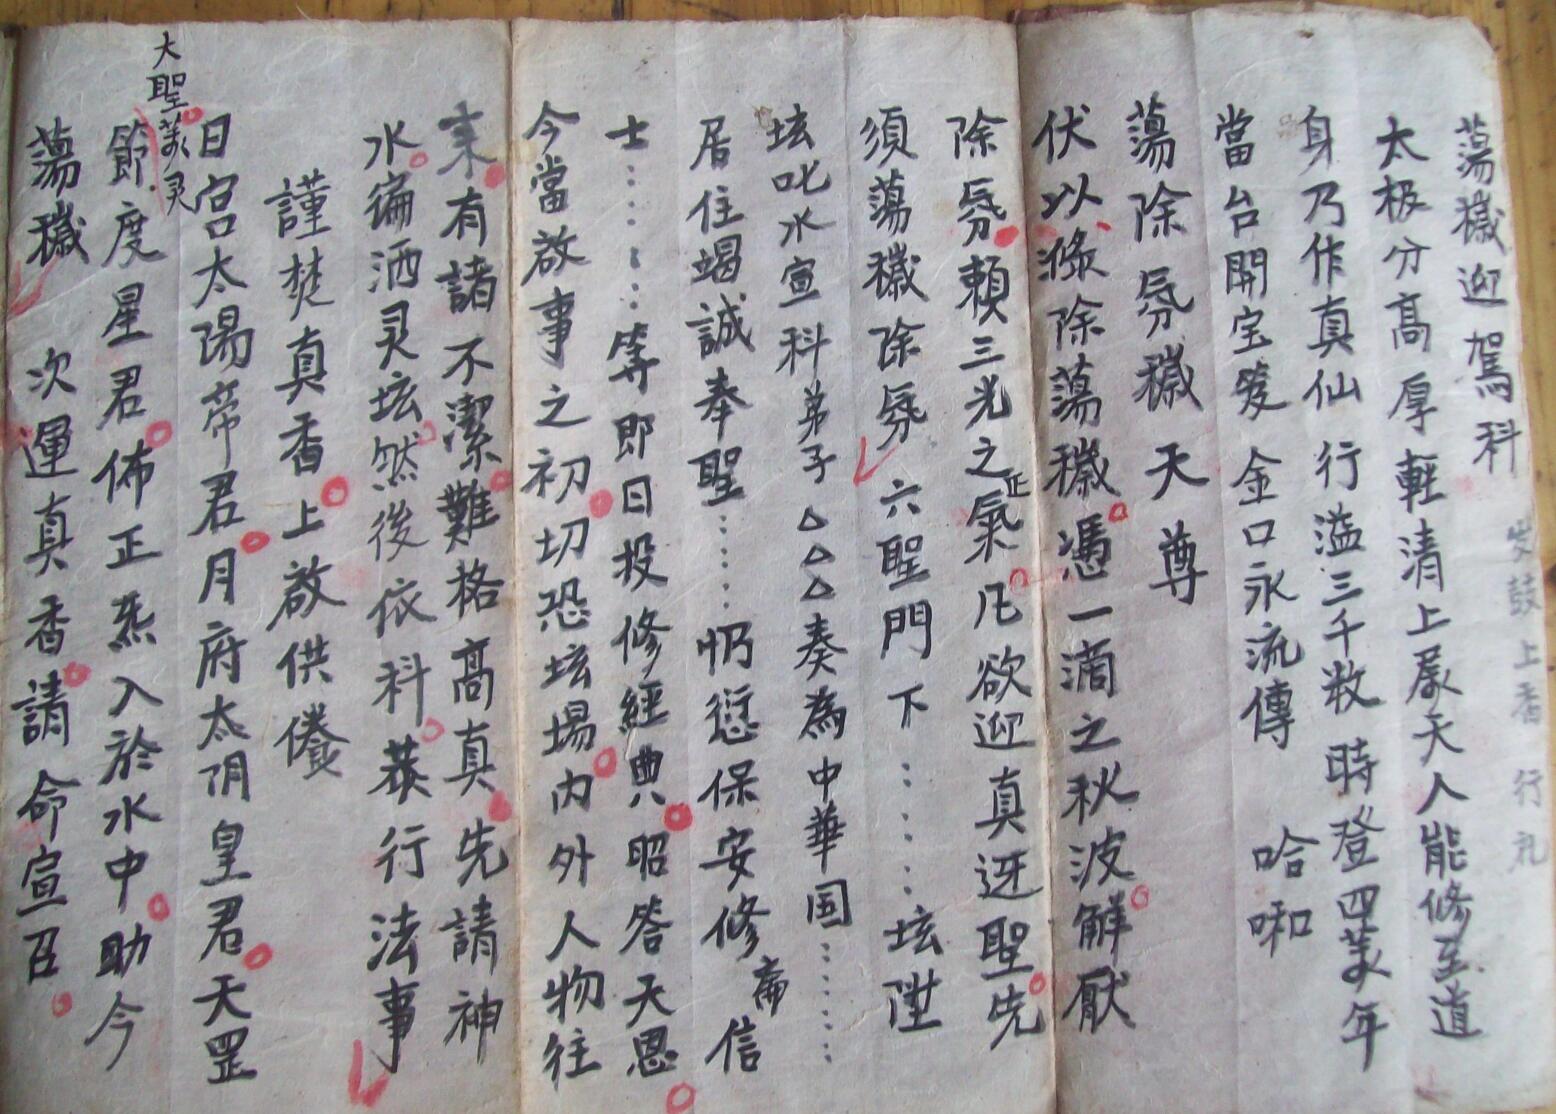 蕩穢迎駕科 发鼓上香行礼
太极分高厚軽清上屬天人能修至道
身乃作真仙行溢三千数時登四萬年
當台開宝笈金口永流傳 哈㖿
蕩除氛穢天尊
伏以滌除蕩穢憑一滴之秋波解厭
除氛賴三光之正氣凡欲迎真迓聖先
須蕩穢除氛六聖門下……坛陞
坛叱水宣科弟子△△△奏為中華国……
居住竭誠奉聖……仍愆保安修斋信
士……等即日投修經典昭答天恩
今當啟事之初切恐坛場内外人物往
来有諸不潔難格高真先請神
水徧洒灵坛然後依科恭行法事
謹焚真香上啟供養
日宫太陽帝君月府太阴皇君天罡
大聖萬灵
節度星君佈正炁入於水中助今
蕩穢 次運真香請命宣召